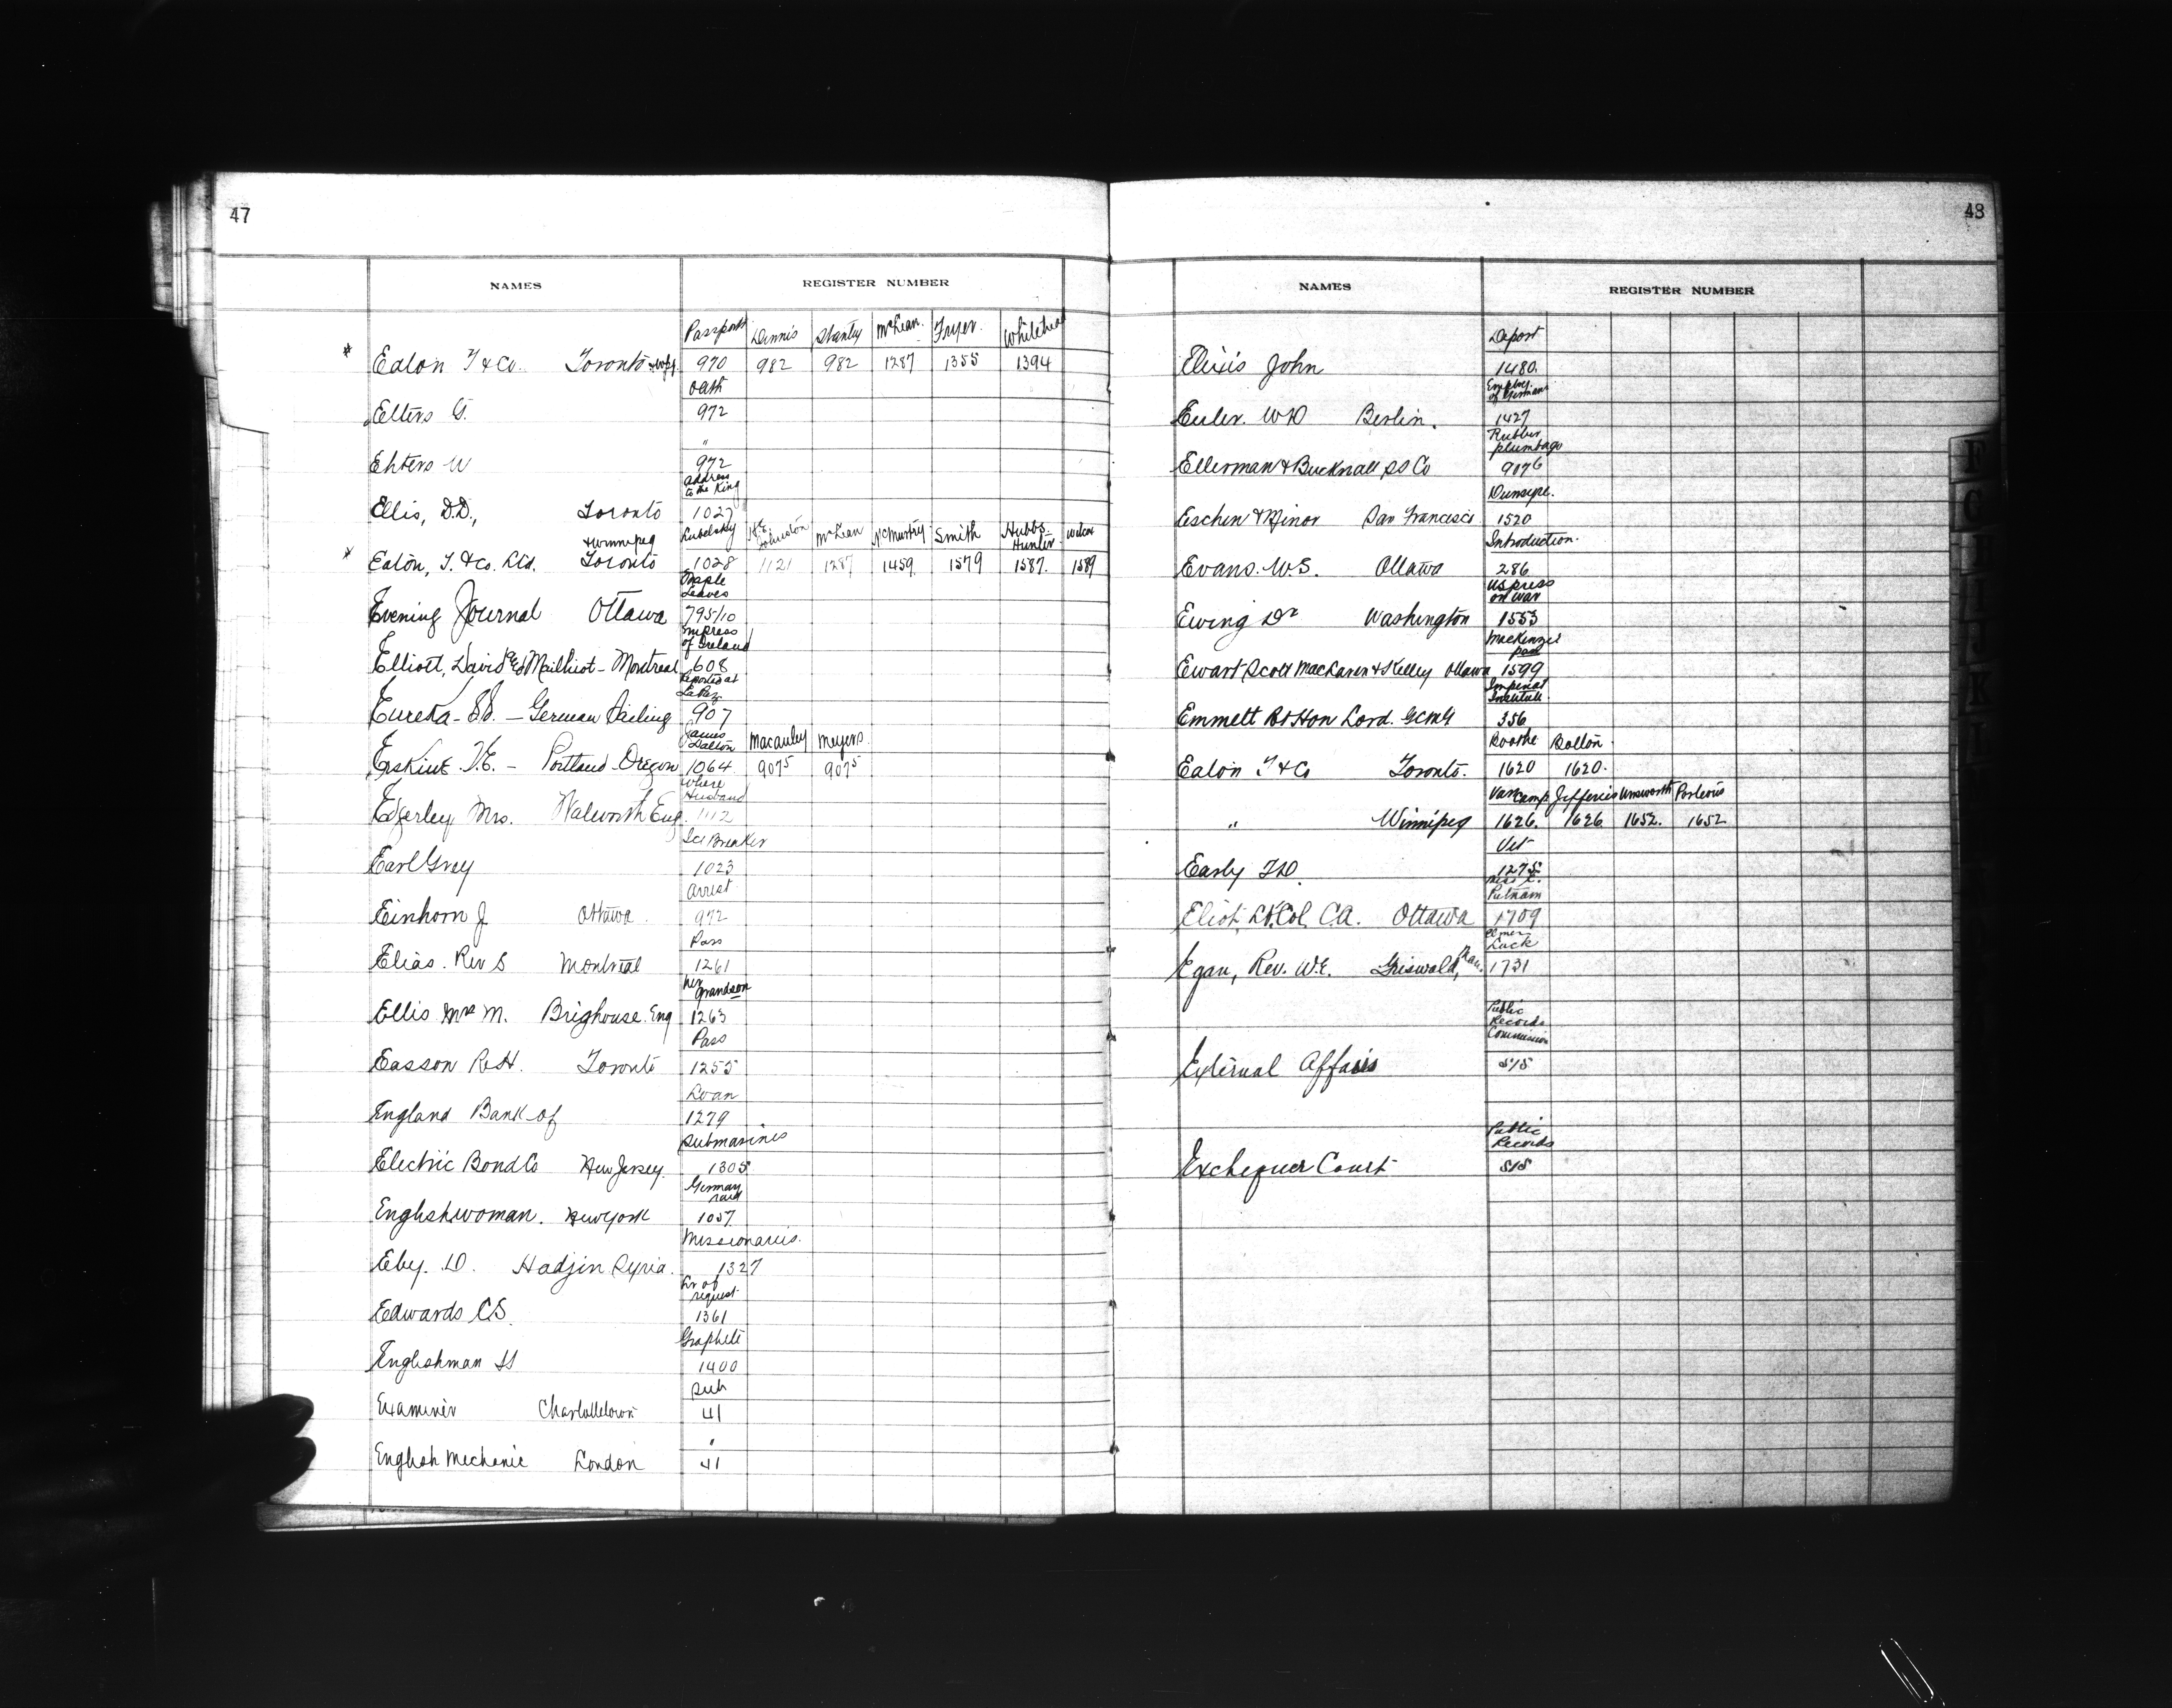 47
NAMES REGISTER NUMBER
Passports Dennis Stanley McLean Fryer Whitehead
* Eaton T & Co. Toronto 970 982 982 1287 1355 1394
oath
Elters G. 972
"
Ehters W 972
address to the King
Ellis, D.D., Toronto 1027
& Winnipeg Lubelsky Johnston McLean McMurtry Smith Hubbs Hunter Wilcox
* Eaton, T. & Co. Ltd. Toronto 1028 1121 1287 1459 1579 1587. 1589
Maple Leaves
Evening Journal Ottawa 795/10
Empress of Ireland
Elliott, David & Mailhiot - Montreal 608
Reported at La Paz
Eureka - SS. - German Sailing 907
James Dalton Macauley Meyers
Erskine T.E. - Portland Oregon 1064 907⁵ 907⁵
Where Husband
Edgerley Mrs. Walworth Eng. 1112
Ice Breaker
Earl Grey 1023
Arrest
Einhorn J Ottawa. 972
Pass
Elias. Rev S Montreal 1261
her grandson
Ellis Mrs M. Brighouse. Eng 1263
Pass
Easson R.H. Toronto 1255
Loan
England Bank of 1279
Submarines
Electric Bond Co New Jersey. 1305
German raid
Englishwoman. New York 1057
Missionaries.
Eby. D. Hadjin Syria. 1327
Lr of request
Edwards C.S. 1361
Graphite
Englishman SS 1400
Sub
Examiner Charlottetown 41
"
English Mechanic London 41
48
NAMES REGISTER NUMBER
Deport
Elixis John 1480.
Employ. of Germans
Euler. W D Berlin. 1427
Rubber plumbago
Ellerman & Bucknall SS Co 907⁶
Dunsyre.
Eschen & Minor San Francisco 1520
Introduction.
Evans. W.S. Ottawa 286
US press on war
Ewing Dr Washington 1553
Mackenzie pass
Ewart Scott MacLaren & Kelley Ottawa 1599
Imperial Institute.
Emmett Rt Hon Lord. GCMG 356
Boothe Bolton
Eaton T & Co Toronto. 1620 1620.
Van Camp Jefferies Unsworth Porteous
" Winnipeg 1626. 1626 1652. 1652
Vet
Early F.D. 1275
Miss E. Putnam
Eliot, Lt. Col. C.A. Ottawa 1709
Elmer Luck
Egan, Rev. W.E. Griswold, Man. 1731
Public Records Commission
External Affairs 515
Public Records
Exchequer Court 515
F
G
H
I
J
K
L